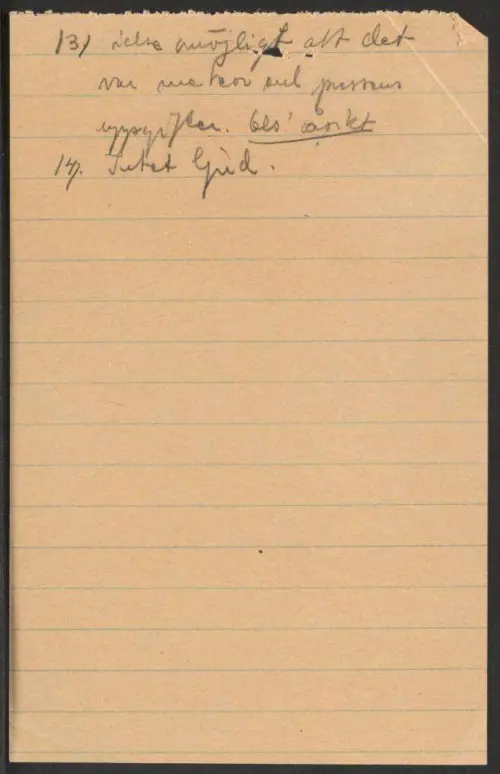 13) icke omöjligt att det
var meteor enl pressens
uppgifter.
14). Intet ljud.